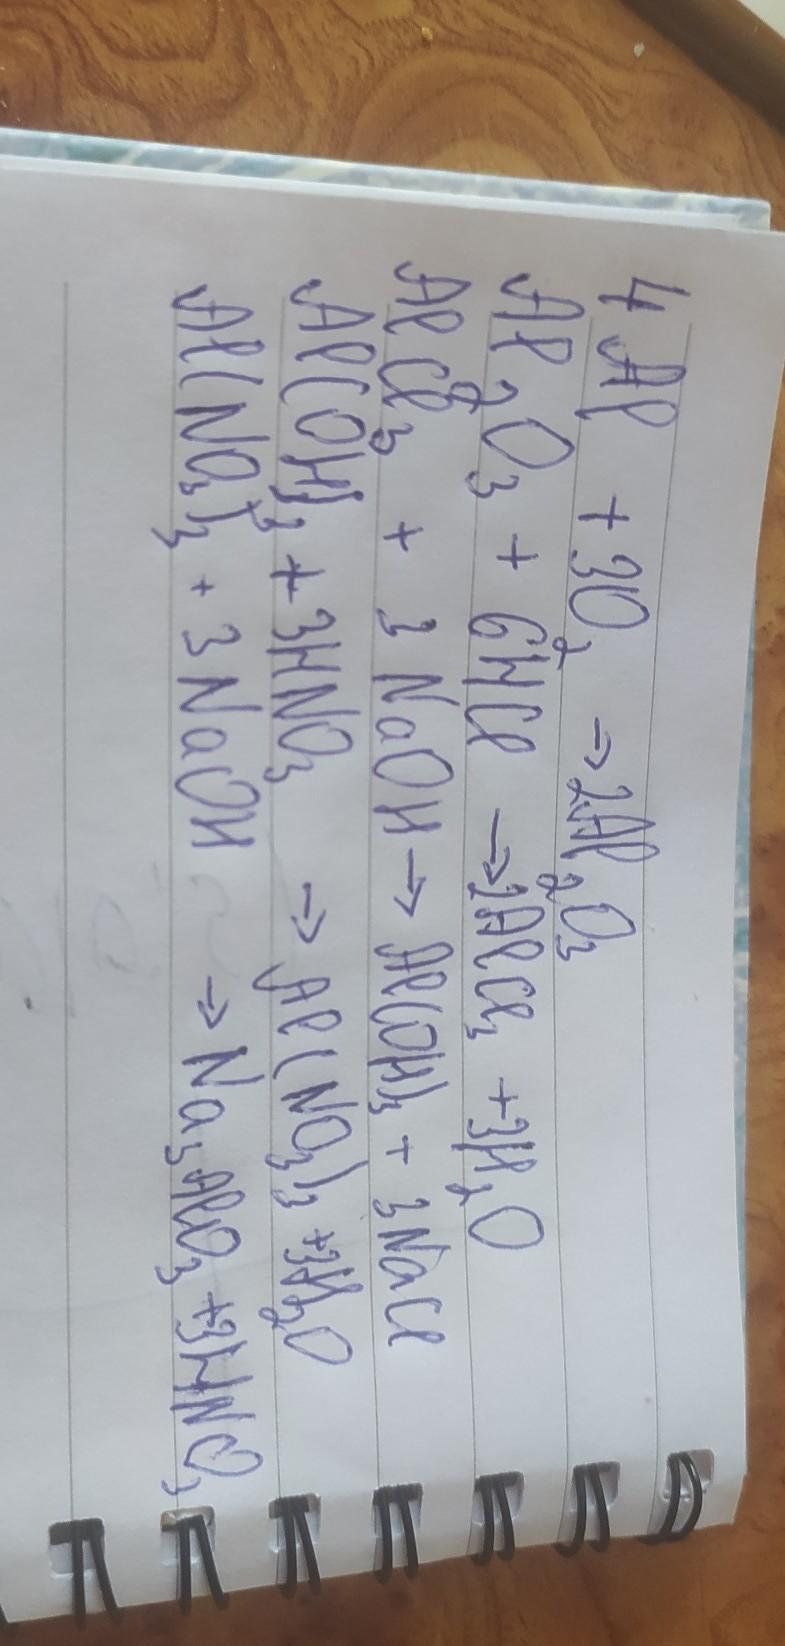 4Al + 3O₂ → 2Al₂O₃
Al₂O₃ + 6HCl → 2AlCl₃ + 3H₂O
AlCl₃ + 3NaOH → Al(OH)₃ + 3NaCl
Al(OH)₃ + 3HNO₃ → Al(NO₃)₃ + 3H₂O
Al(NO₃)₃ + 3NaOH → Na₃AlO₃ + 3HNO₃